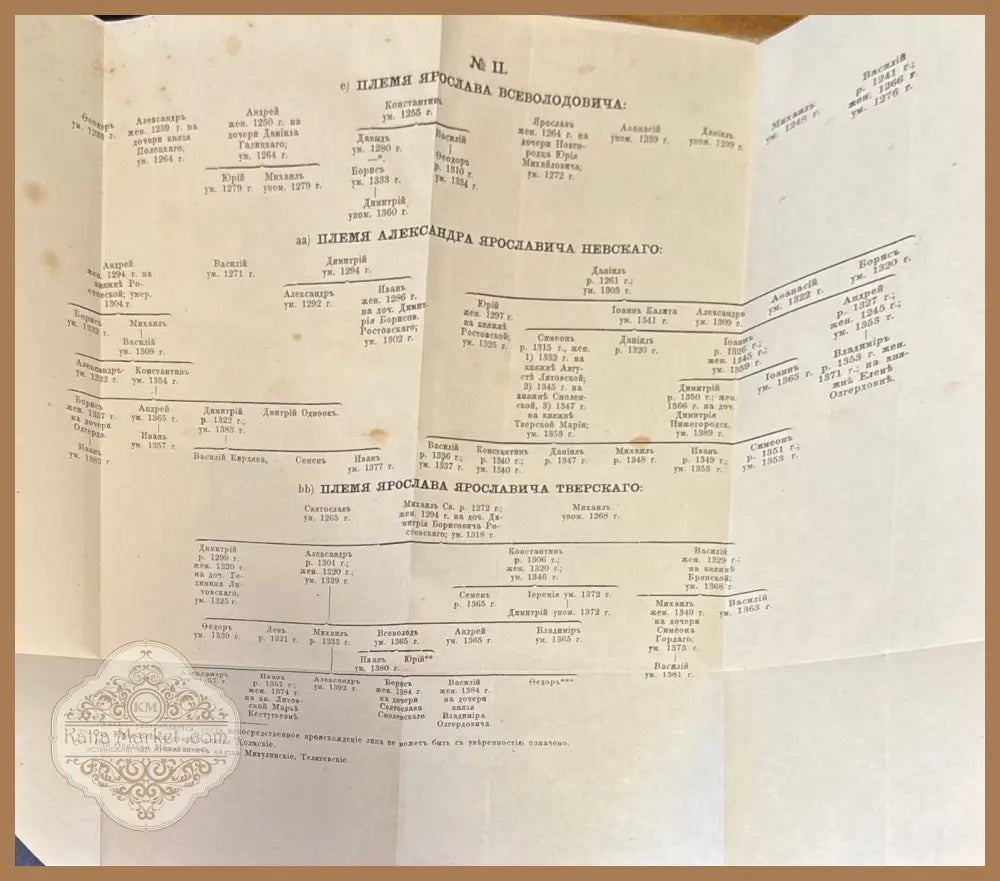 № II.
е) ПЛЕМЯ ЯРОСЛАВА ВСЕВОЛОДОВИЧА:
Ѳеодоръ
ум. 1233 г.
Александръ
жен. 1239 г. на
дочери князя
Полоцкаго;
ум. 1264 г.
Андрей
жен. 1250 г. на
дочери Даніила
Галицкаго;
ум. 1264 г.
Юрій
ум. 1279 г.
Михаилъ
упом. 1279 г.
Константинъ
ум. 1255 г.
Давыдъ
ум. 1280 г.
—*.
Борисъ
ум. 1333 г.
Димитрій
упом. 1360 г.
Василій
Ѳеодоръ
р. 1310 г.
ум. 1334 г.
Ярославъ
жен. 1264 г. на
дочери Новго-
родца Юрія
Михайловича;
ум. 1272 г.
Аѳанасій
упом. 1239 г.
Даніилъ
упом. 1239 г.
Михаилъ
ум. 1248 г.
Василій
р. 1241 г.;
жен. 1266 г.
ум. 1276 г.
аа) ПЛЕМЯ АЛЕКСАНДРА ЯРОСЛАВИЧА НЕВСКАГО:
Андрей
жен. 1294 г. на
княжнѣ Ро-
стовской; умер.
1304 г.
Василій
ум. 1271 г.
Димитрій
ум. 1294 г.
Даніилъ
р. 1261 г.;
ум. 1303 г.
Борисъ
ум. 1332 г.
Михаилъ
Василій
ум. 1309 г.
Александръ
ум. 1292 г.
Иванъ
жен. 1286 г.
на доч. Димит-
рія Борисов.
Ростовскаго;
ум. 1302 г.
Юрій
жен. 1297 г.
на княжнѣ
Ростовской;
ум. 1325 г.
Іоаннъ Калита
ум. 1341 г.
Александръ
ум. 1309 г.
Аѳанасій
ум. 1322 г.
Борисъ
ум. 1320 г.
Александръ
ум. 1332 г.
Константинъ
ум. 1354 г.
Симеонъ
р. 1315 г., жен.
1) 1332 г. на
княжнѣ Авгу-
стѣ Литовской;
2) 1345 г. на
княжнѣ Смолен-
ской, 3) 1347 г.
на княжнѣ
Тверской Марія;
ум. 1353 г.
Даніилъ
р. 1320 г.
Іоаннъ
р. 1326 г.;
жен. 1345 г.;
ум. 1359 г.
Андрей
р. 1327 г.;
жен. 1245 г.;
ум. 1353 г.
Димитрій
р. 1350 г.; жен.
1366 г. на доч.
Димитрія
Нижегородск.
ум. 1389 г.
Іоаннъ
ум. 1365 г.
Владиміръ
р. 1353 г. жен.
1371 г.; на кня-
жнѣ Еленѣ
Олгердовнѣ.
Борисъ
жен. 1357 г.
на дочери
Олгерда.
Иванъ
ум. 1383 г.
Андрей
ум. 1365 г.
Иванъ
ум. 1357 г.
Димитрій
р. 1322 г.;
ум. 1383 г.
Дмитрій Одноок.
Василій Кирдяпа,
Семенъ
Иванъ
ум. 1377 г.
Василій
р. 1336 г.;
ум. 1337 г.
Константинъ
р. 1340 г.;
ум. 1340 г.
Даніилъ
р. 1347 г.
Михаилъ
р. 1348 г.
Иванъ
р. 1349 г.;
ум. 1353 г.
Симеонъ
р. 1351 г.;
ум. 1353 г.
bb) ПЛЕМЯ ЯРОСЛАВА ЯРОСЛАВИЧА ТВЕРСКАГО:
Святославъ
ум. 1265 г.
Михаилъ Св. р. 1272 г.;
жен. 1294 г. на доч. Ди-
митрія Борисовича Ро-
стовскаго; ум. 1318 г.
Михаилъ
упом. 1268 г.
Димитрій
р. 1299 г.
жен. 1320 г.
на доч. Ге-
димина Ли-
товскаго;
ум. 1325 г.
Александръ
р. 1301 г.;
жен. 1320 г.;
ум. 1339 г.
Константинъ
р. 1306 г.;
жен. 1320 г.;
ум. 1346 г.
Василій
жен. 1329 г.;
на княжнѣ
Брянской;
ум. 1368 г.
Семенъ
р. 1365 г.
Іеремія ум. 1372 г.
Димитрій упом. 1372 г.
Михаилъ
жен. 1349 г.
на дочери
Симеона
Гордаго;
ум. 1373 г.
Василій
ум. 1381 г.
Василій
ум. 1363 г.
Ѳедоръ
ум. 1339 г.
Левъ
р. 1321 г.
Михаилъ
р. 1333 г.
Всеволодъ
ум. 1365 г.
Андрей
ум. 1365 г.
Владиміръ
ум. 1365 г.
Иванъ
ум. 1380 г.
Юрій**
Александръ
Иванъ
р. 1357 г.;
жен. 1374 г.
на кн. Литов-
ской Марьѣ
Кестутьевнѣ.
Александръ
ум. 1392 г.
Борисъ
жен. 1384 г.
на дочери
Святослава
Смоленскаго
Василій
жен. 1384 г.
на дочери
князя
Владиміра
Олгердовича.
Ѳедоръ***
непосредственное происхожденіе лица не можетъ быть съ увѣренностью означено.
Холмскіе.
Микулинскіе, Телятевскіе.
KM
Katia Market.com